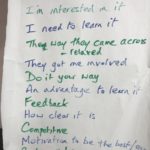 I'm interested in it
I need to learn it
The way they came across
- relaxed
They got me involved
Do it your way
An advantage to learn it
Feedback
How clear it is
Competitive
Motivation to be the best/